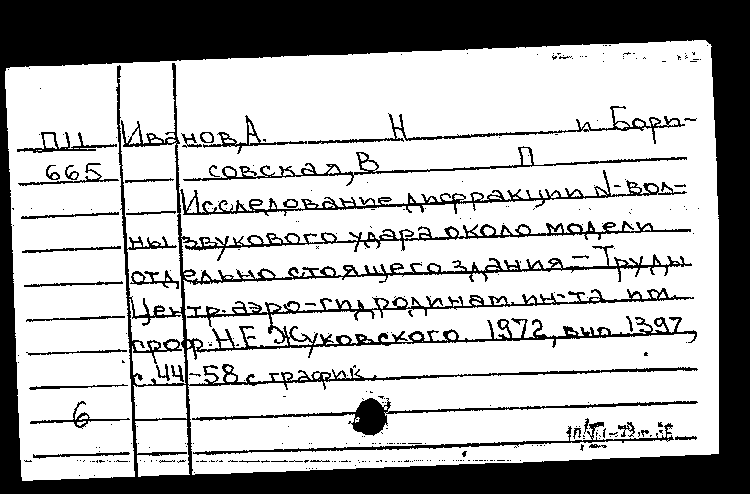 П11 Иванов, А. Н и Бори-
665 совская, В П
Исследование дифракции N-вол-
ны звукового удара около модели
отдельно стоящего здания. – Труды
Центр. аэро-гидродинам. ин-та им.
проф. Н.Е. Жуковского. 1972, вып 1397,
с. 44-58 с график.
6